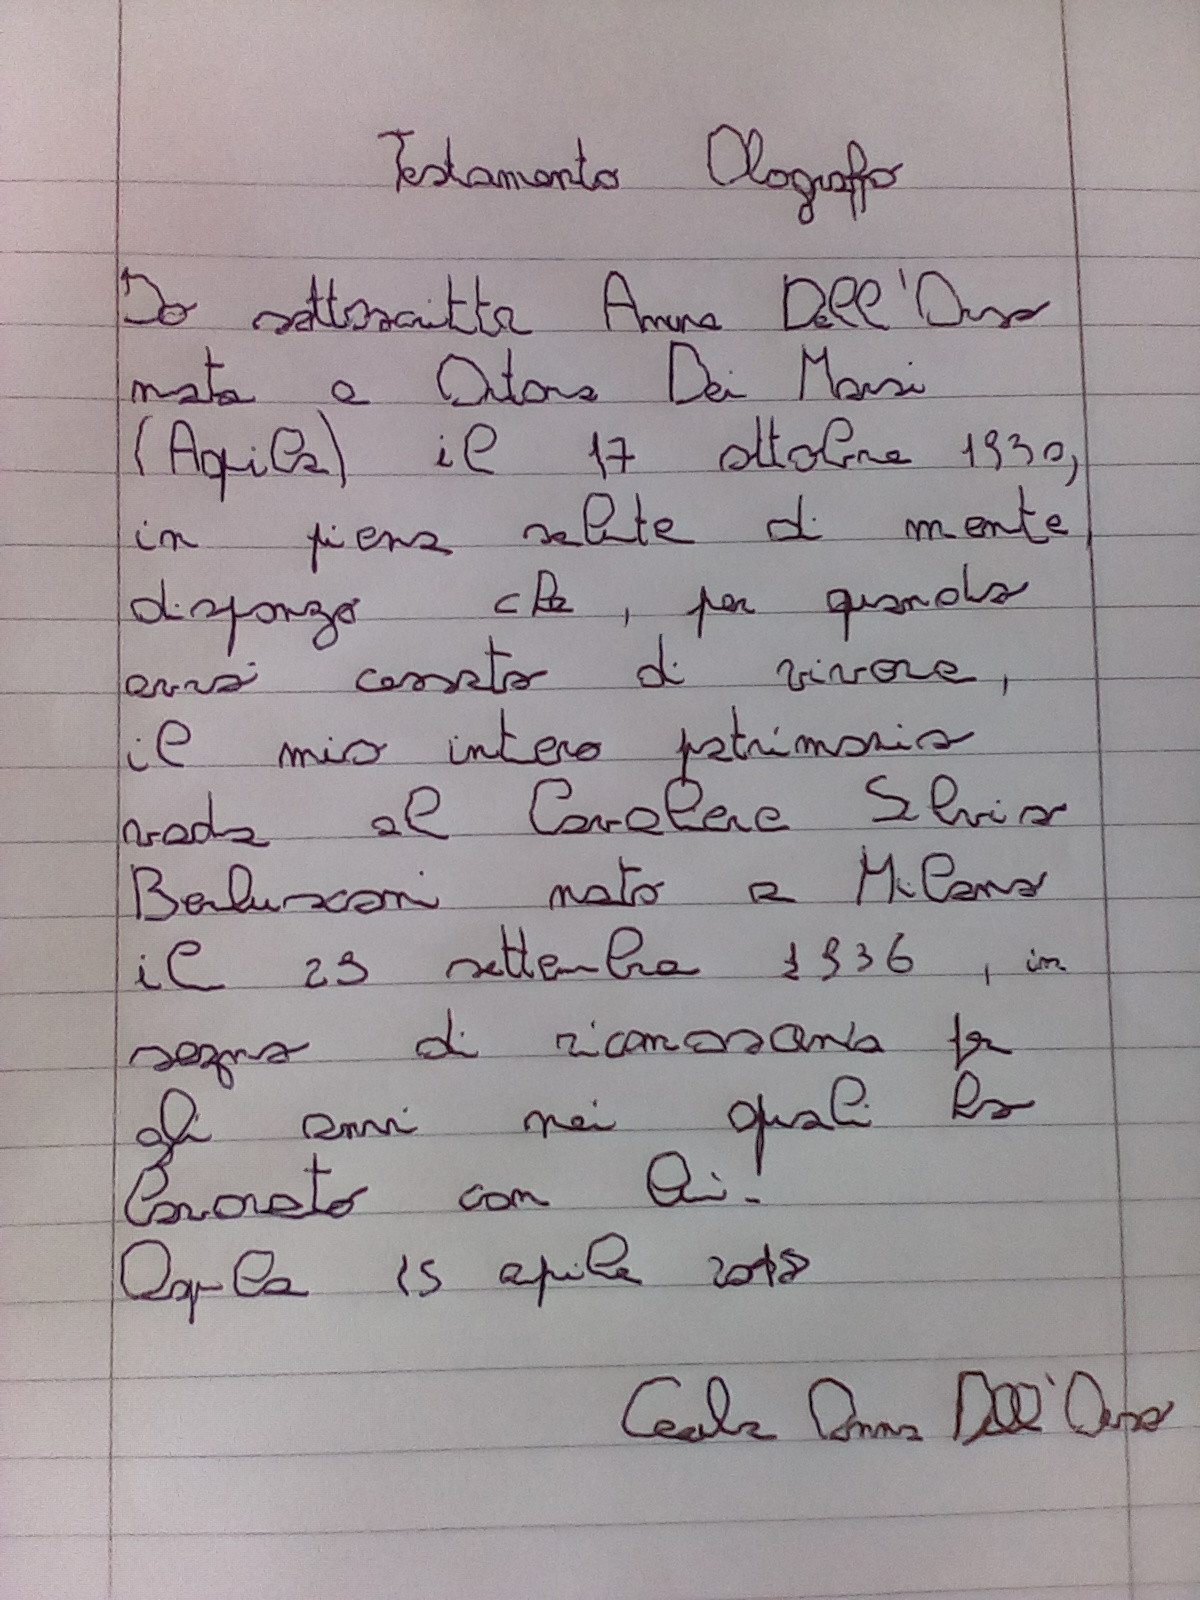 Testamento Olograffo
Io sottoscritta Anna Dell'Orso
nata a Ortona Dei Marsi
(Aquila) il 17 ottobre 1930,
in piena salute di mente,
dispongo che, per quando
avrò cessato di vivere,
il mio intero patrimonio
vada al Cavaliere Silvio
Berlusconi nato a Milano
il 29 settembre 1936, in
segno di riconoscenza per
gli anni nei quali ho
lavorato con lui.
Aquila 15 aprile 2018
Anna Dell'Orso